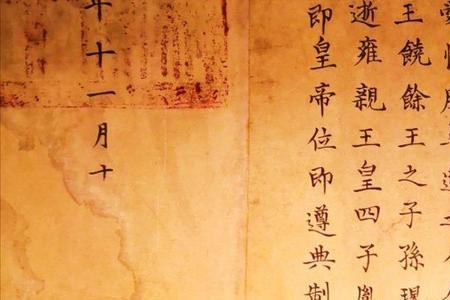 王饒餘王之子孫現
逝雍親王皇四子胤
即皇帝位即遵典制
年十一月十